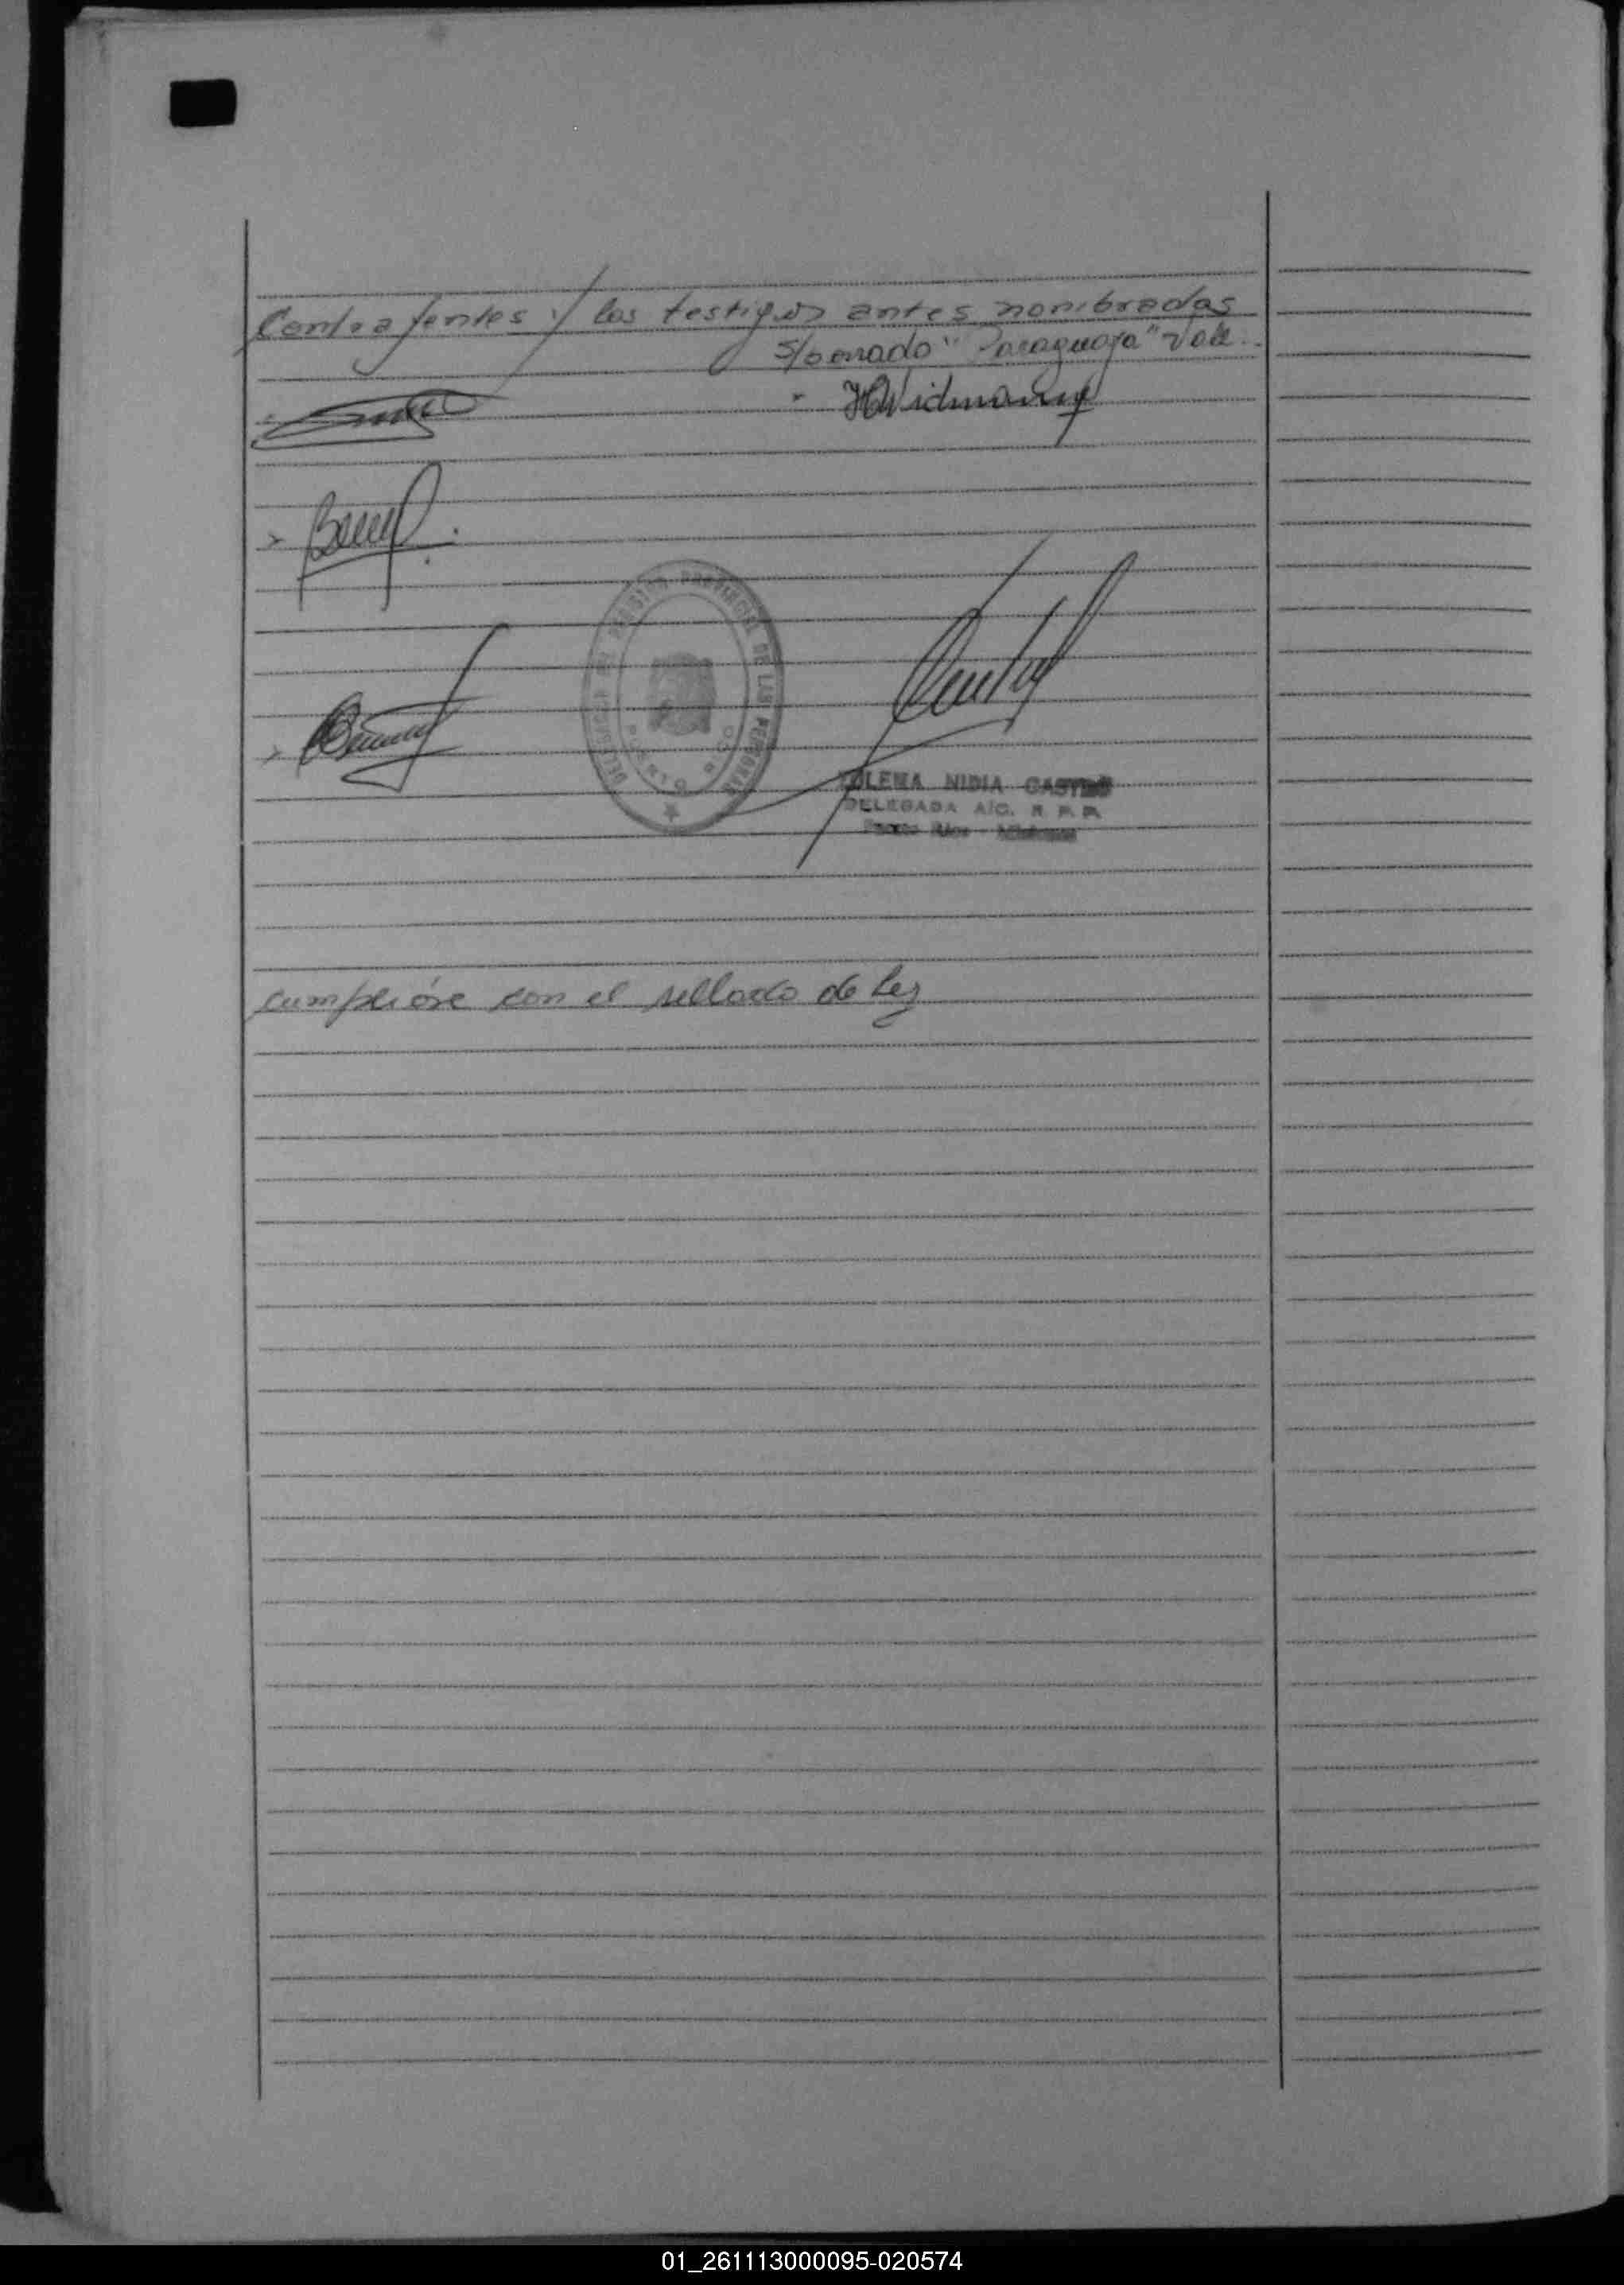 Contrayentes y los testigos antes nombrados
s/borrado "Paraguaya" Vale.
HWidmann
DELEGACION DEL REGISTRO PROVINCIAL DE LAS PERSONAS
PUERTO RICO
NIDIA CASTRO
DELEGADA A/C. R. P. P.
Puerto Rico - Misiones
cumplióse con el sellado de Ley
01_261113000095-020574